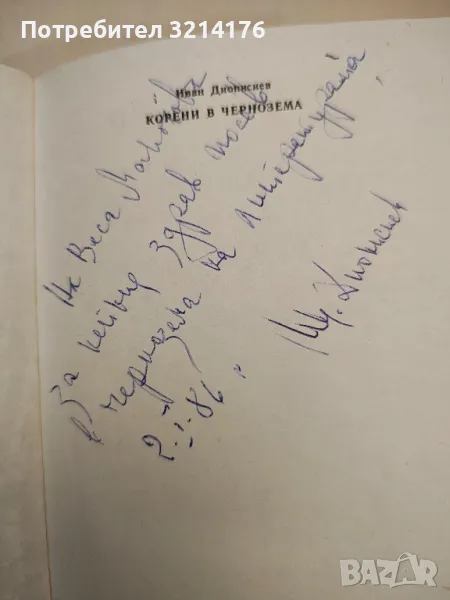 Потребител 3214176
Иван Дионисиев
КОРЕНИ В ЧЕРНОЗЕМА
На Веса
За нейния здрав посев
в чернозема на литературата
2.I.86
Ив. Дионисиев
BAZAR